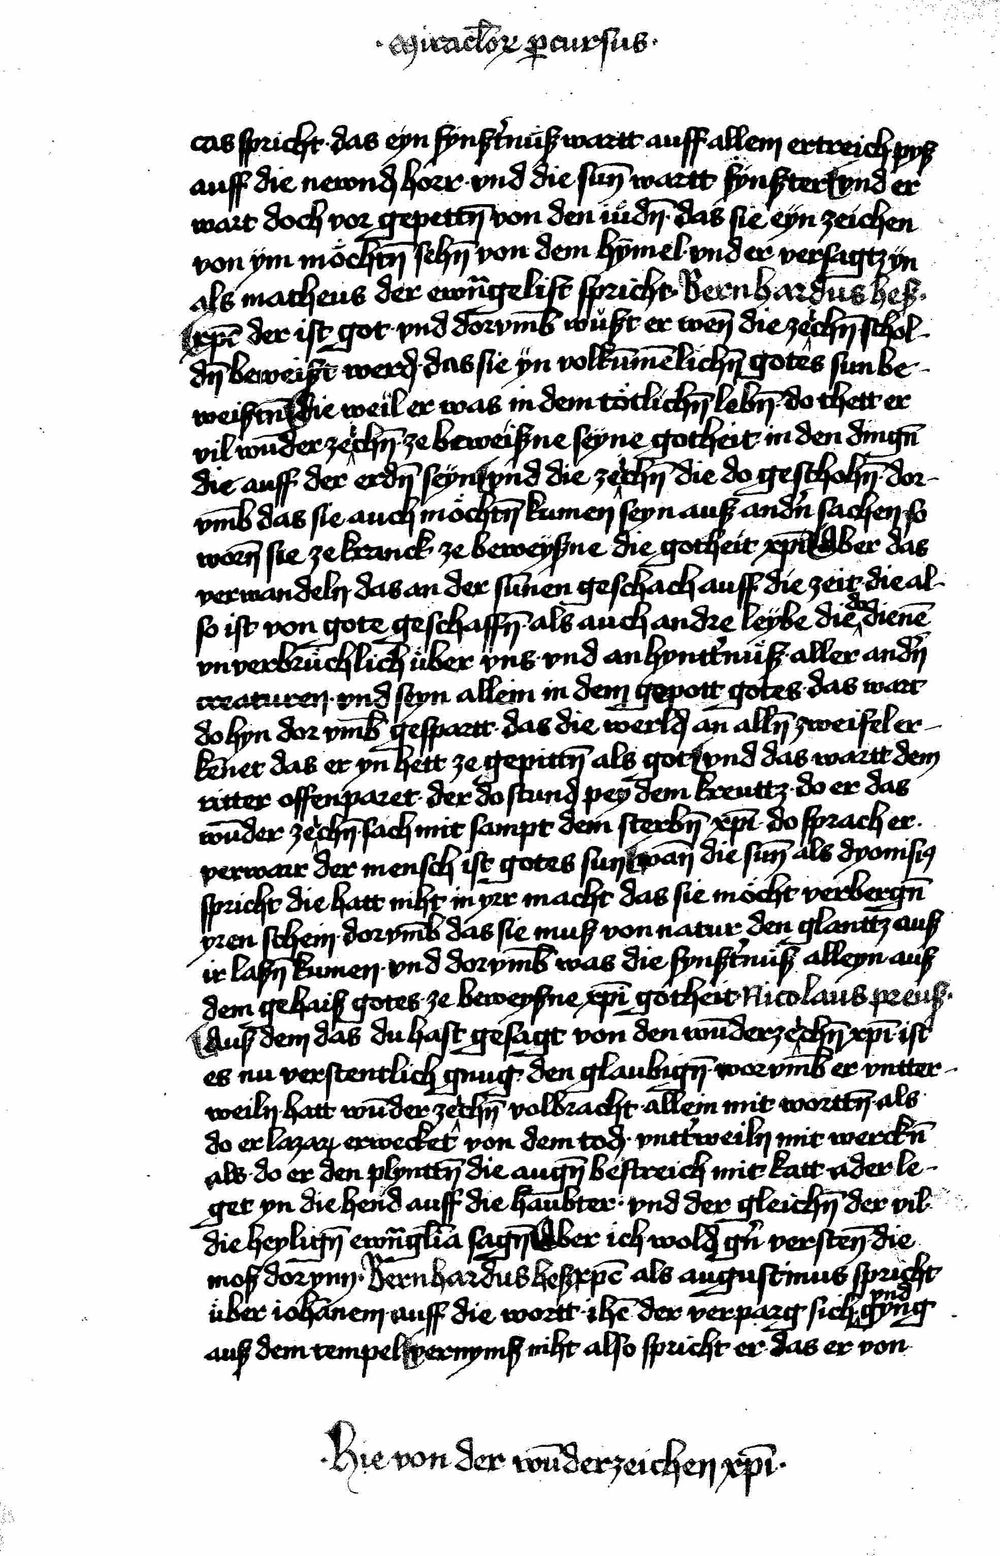 · Miracl̄oꝝ ꝑcursus ·
cas spricht · das eyn fynßt̕nůß wartt auff allem ertreich pyß
auff die newnd horr · vnd die sun̄ wartt fynßter vnd er
wart doch vor gepettn̄ von den iůdn̄ · das sie eyn zeichen
von ym mo̊chtn̄ sehn̄ von dem hẏmel · vnd er versagtz yn
als matheus der ewāngelist spricht · Bernhardus heß ·
xp̄c der ist got · vnd dorvm̄b wůßt er wen̄ die zechn̄ schol-
dn̄ beweißt werd · das sie yn volkum̄elichn̄ gotes sun be-
weistn̄ Die weil er was in dem to̊tlichn̄ lebn̄ · do thett er
vil wūder zechn̄ · ze beweißne seyne gotheit · in den dingn̄
die auff der erdn̄ seyn vnd die zechn̄ die do geschohn̄ · dor-
vm̄b das sie auch mo̊chtn̄ kumen seyn auß andn̄ sachen · so
worn̄ sie ze kranck · ze beweyßne die gotheit xp̄i Aber das
verwandeln das an der sun̄en geschach auff die zeit · die al-
so ist von gote geschaffn̄ · als auch andre leybe die do dienē
vnverbrůchlich ůber vns · vnd an hyntt̕nůß · aller andn̄
creaturen · vnd seyn allein in dem gepott gotes · das wart
do hyn dor vm̄b gespartt · das die werld an alln̄ zweifel er-
ken̄et das er yn hett ze gepittn̄ als got vnd das wartt dem
ritter offenparet · der do stund pey dem kreuttz · do er das
wūder zechn̄ sach mit sampt dem sterbn̄ xp̄i · do sprach er ·
verwarr der mensch ist gotes sun wan̄ die sun̄ als dyonisiꝰ
spricht die hatt niht in yrr macht das sie mo̊cht verbergn̄
yren schein · dorvm̄b das sie muß von natur den glanttz auß
ir laßn̄ kumen · vnd dorvm̄b was die fynßt̕nůß alleyn auß
dem gehaiß gotes · ze beweyßne xp̄i gotheit · Nicolaus preuß ·
Auß dem das du hast gesagt von den wūderzechn̄ xp̄i · ist
es nu verstentlich gnug · den glaubign̄ · worvm̄b er vntter-
weiln · hatt wūder zechn̄ volbracht · allein mit worttn̄ · als
do er lazarꝫ erwecket von dem tod · vntt̕weiln mit werckn̄
als · do er den plynttn̄ die augn̄ bestreich mit katt · ader le-
get yn die hend auff die haūbter · vnd der gleichn̄ der vil ·
die heylign̄ ewn̄glia sagn̄ Aber ich wold gn̕ versten̄ die
moß dorynn · Bernhardus heß xp̄c als augustinus spricht
ůber iohān̄em · auff die wortt · ihc̄ der verparg sich vnd gyng
auß dem tempel vernymß niht also spricht er · das er von
· Hie von der wūderzeichen xp̄i ·